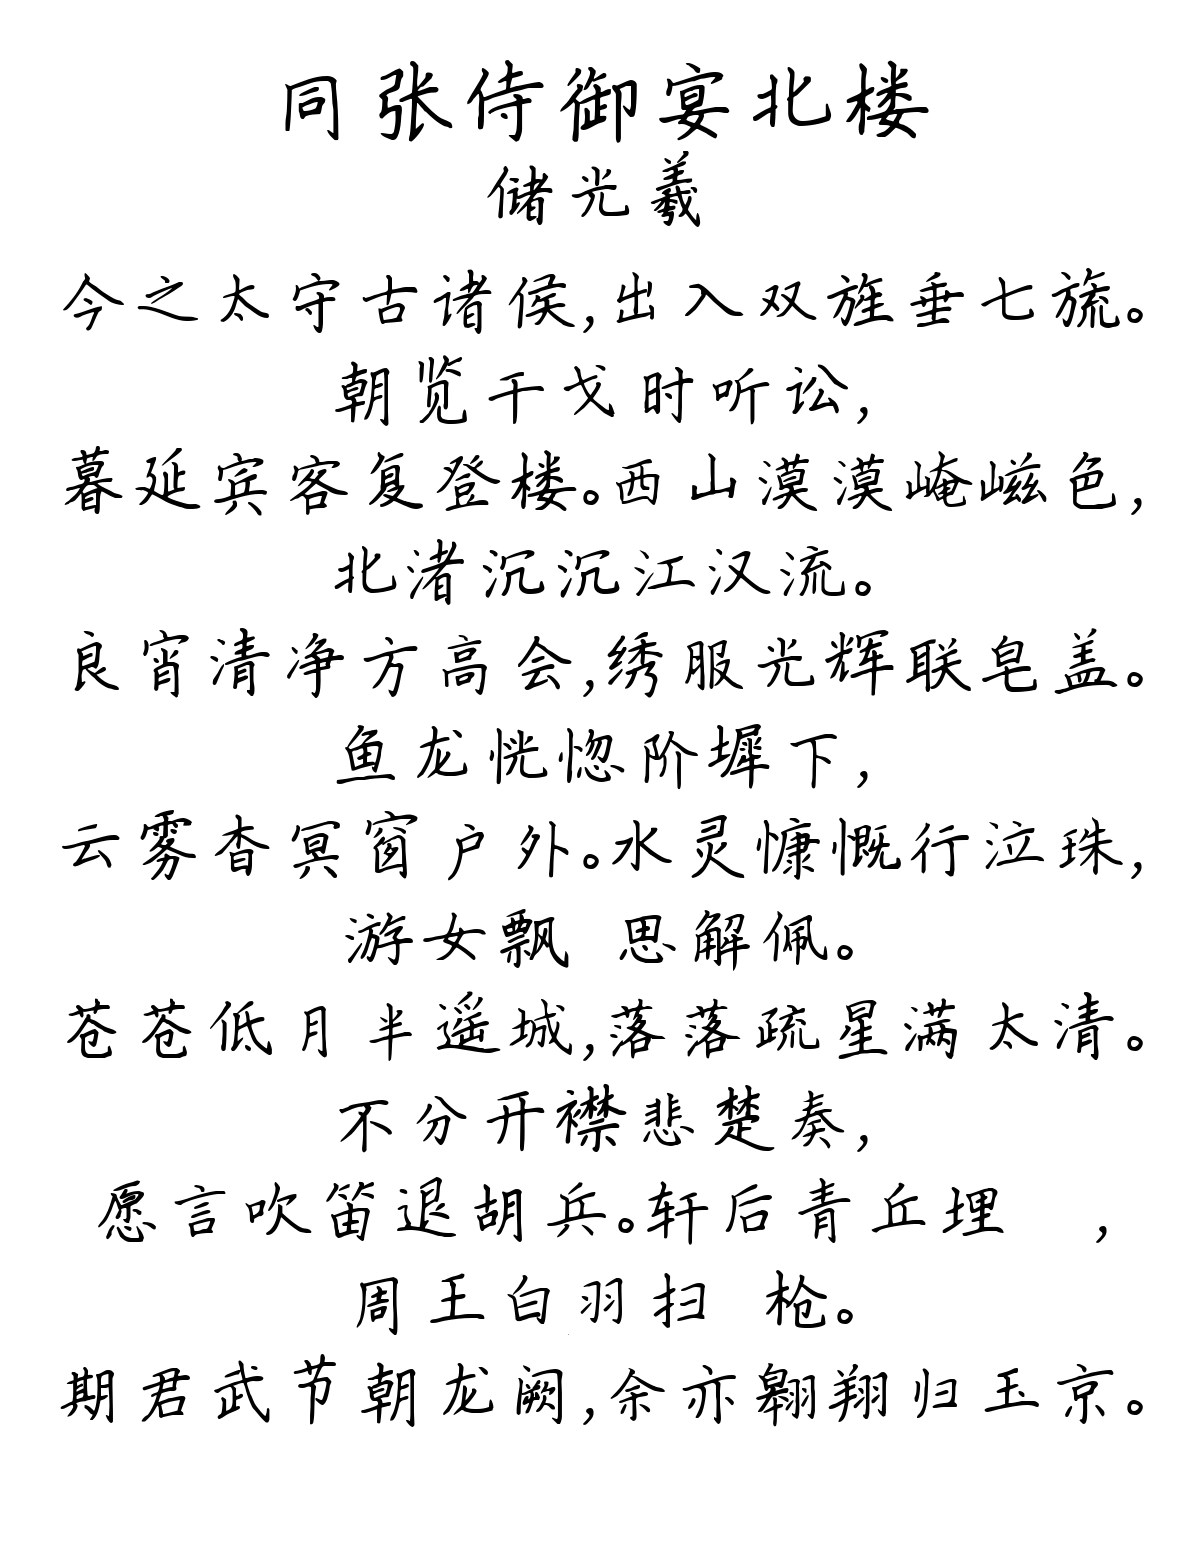 同张侍御宴北楼
储光羲
今之太守古诸侯,出入双旌垂七旒。
朝览干戈时听讼,
暮延宾客复登楼。西山漠漠崦嵫色,
北渚沉沉江汉流。
良宵清净方高会,绣服光辉联皂盖。
鱼龙恍惚阶墀下,
云雾杳冥窗户外。水灵慷慨行泣珠,
游女飘 思解佩。
苍苍低月半遥城,落落疏星满太清。
不分开襟悲楚奏,
愿言吹笛退胡兵。轩后青丘埋 ,
周王白羽扫 枪。
期君武节朝龙阙,余亦翱翔归玉京。